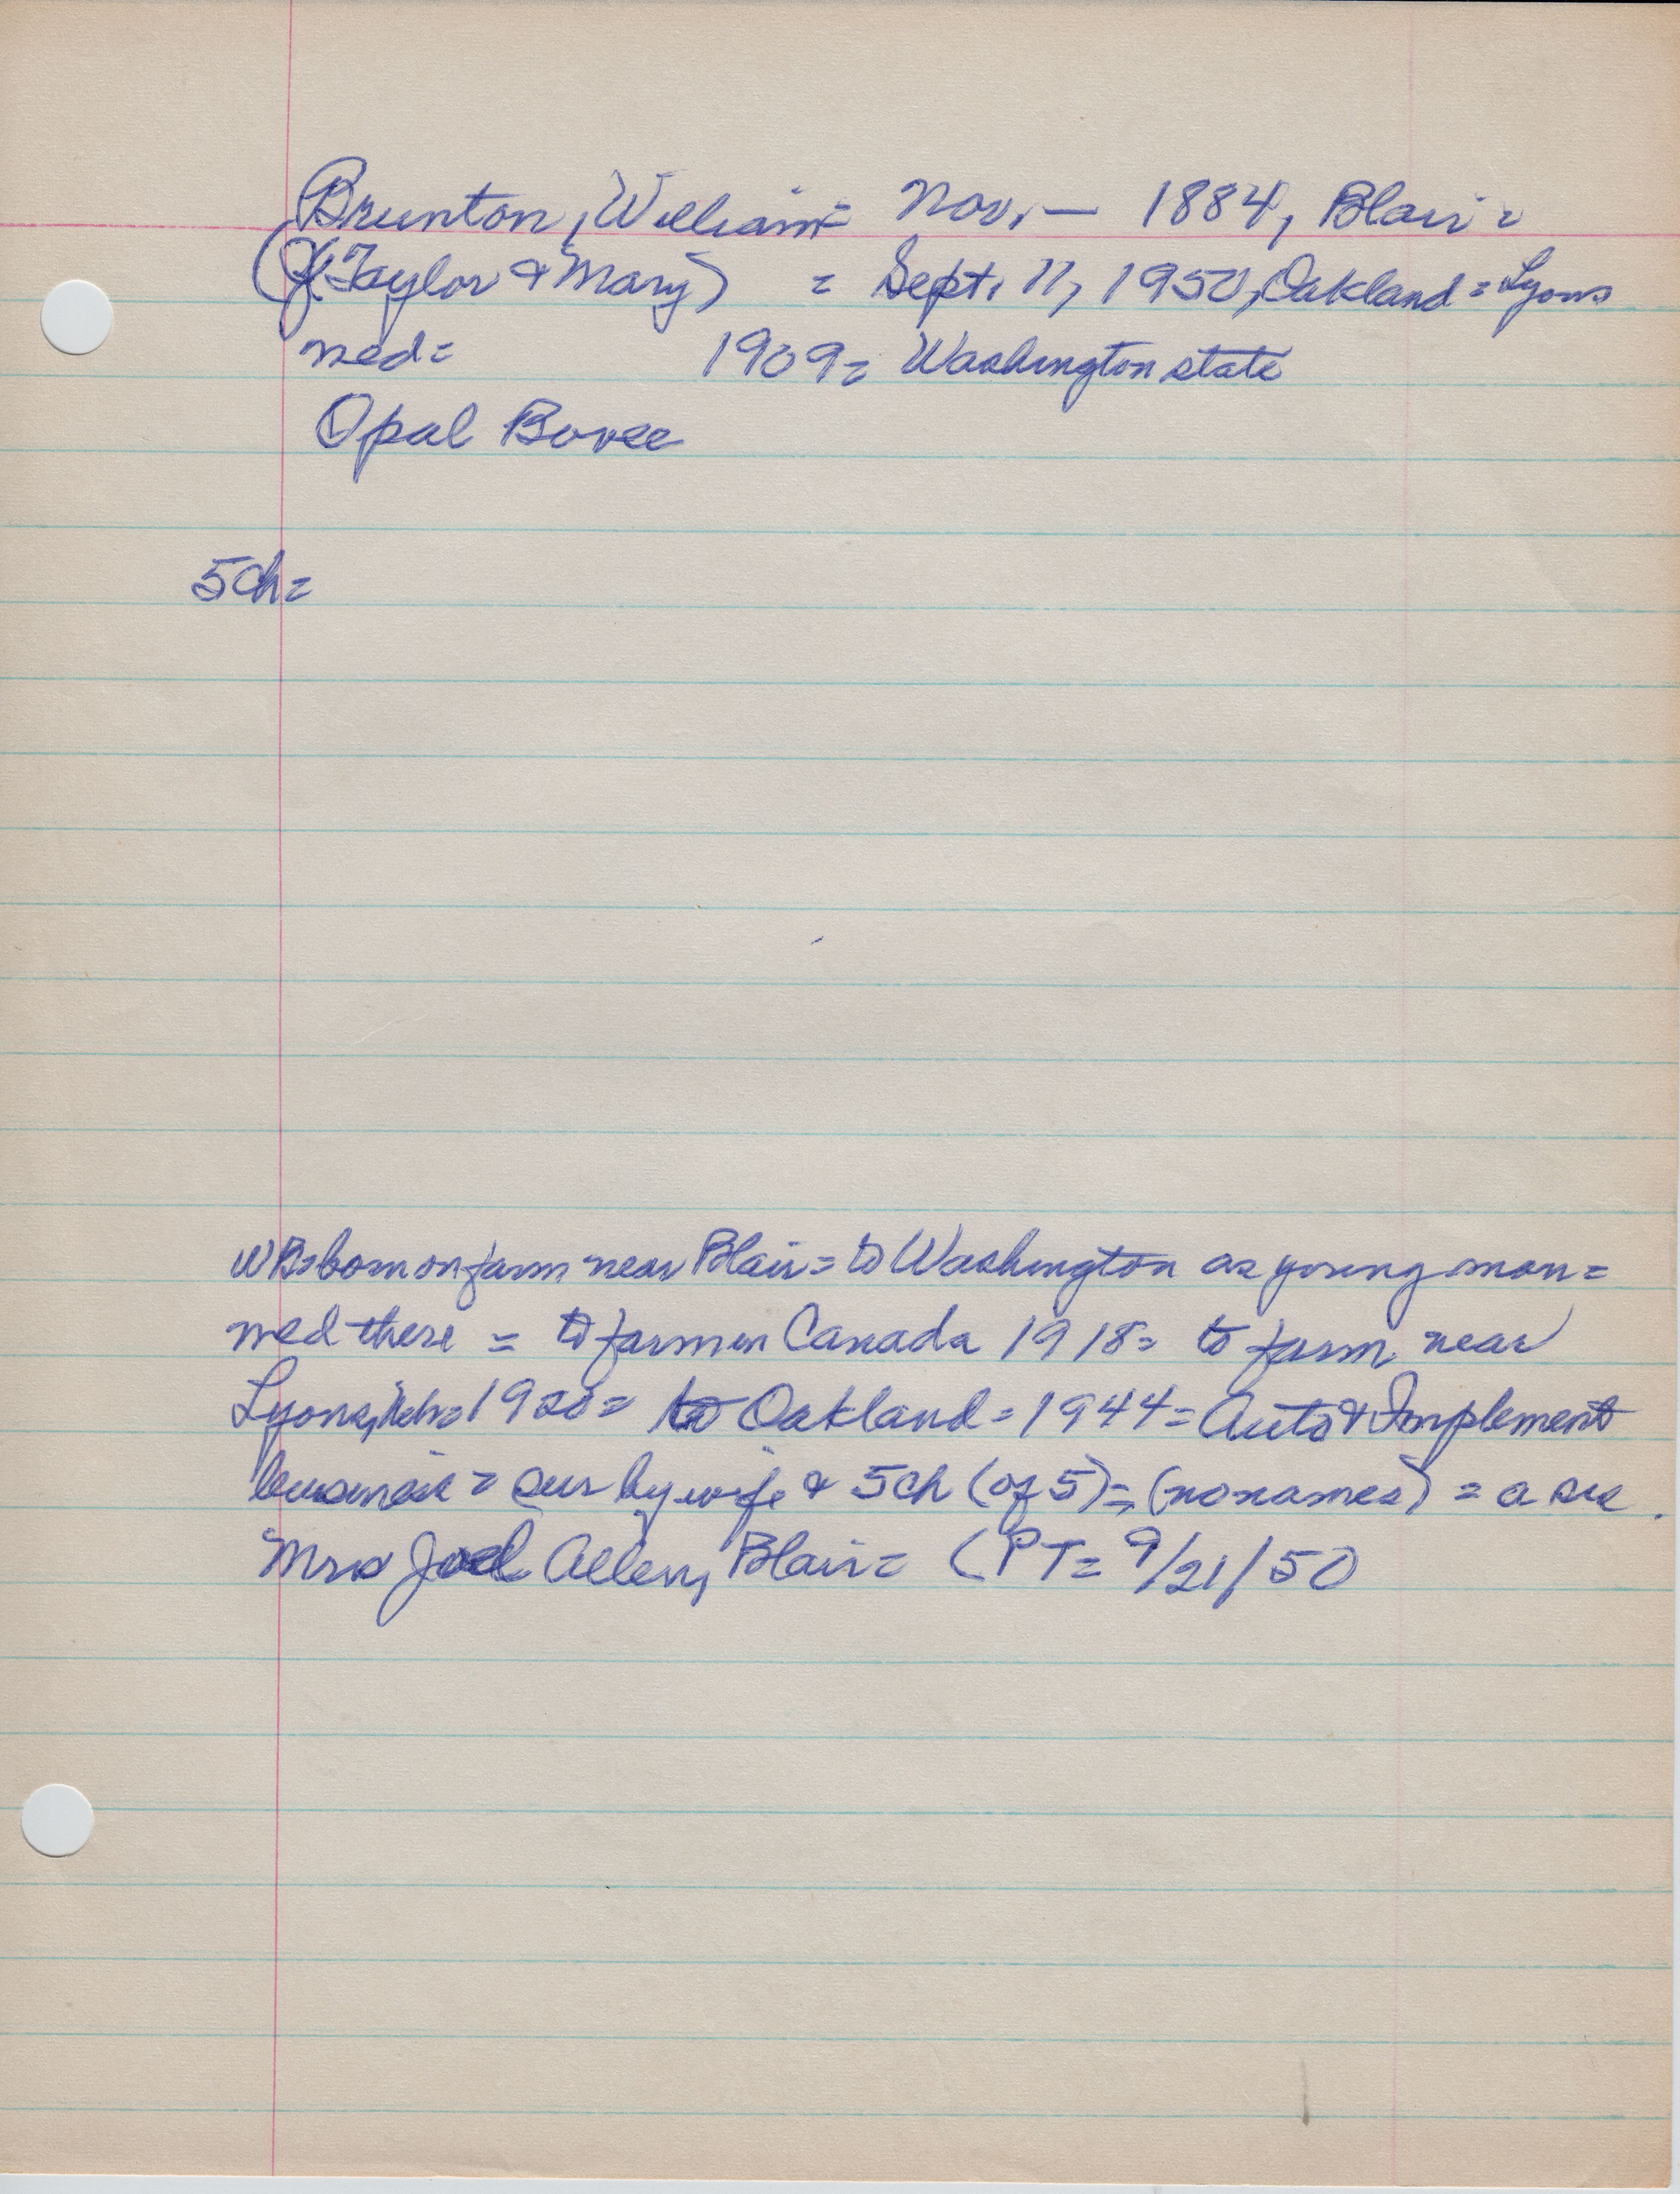 Brunton, William = Nov. — 1884, Blair =
(Z. Taylor & Mary) = Sept. 11, 1950, Oakland = Lyons
med = 1909 = Washington state
Opal Bovee
5 ch =
WB = born on farm near Blair = to Washington as young man =
med there = to farm in Canada 1918 = to farm near
Lyons, Neb = 1920 = to Oakland = 1944 = Auto & Implement
business = sur by wife & 5 ch (of 5) = (no names) = a sis
Mrs Joel Allen, Blair = (PT = 9/21/50